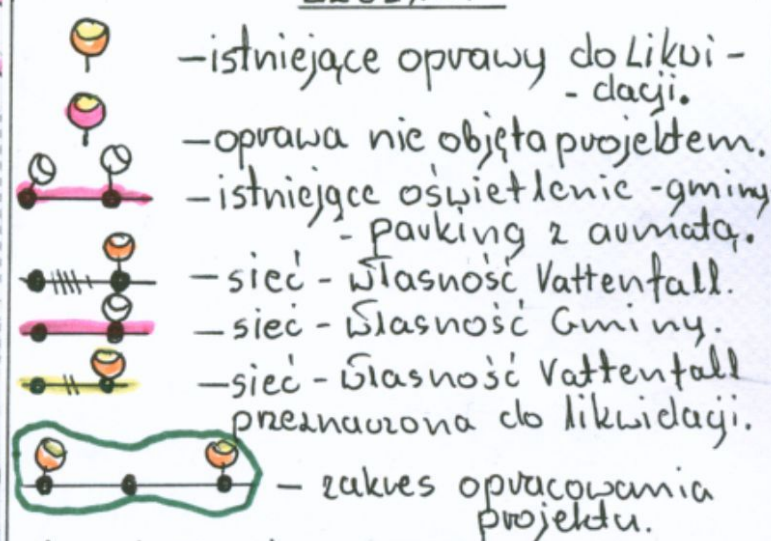 -istniejące oprawy do likwi-
- dacji.
-oprawa nie objęta projektem.
-istniejące oświetlenie -gminy
- parking z armatą.
-sieć - Własność Vattenfall.
-sieć - Własność Gminy.
-sieć - Własność Vattenfall
przeznaczona do likwidacji.
- zakres opracowania
projektu.